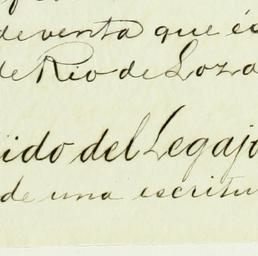 de venta que és
de Rio de Loza
ido del Legajo
de una escritu